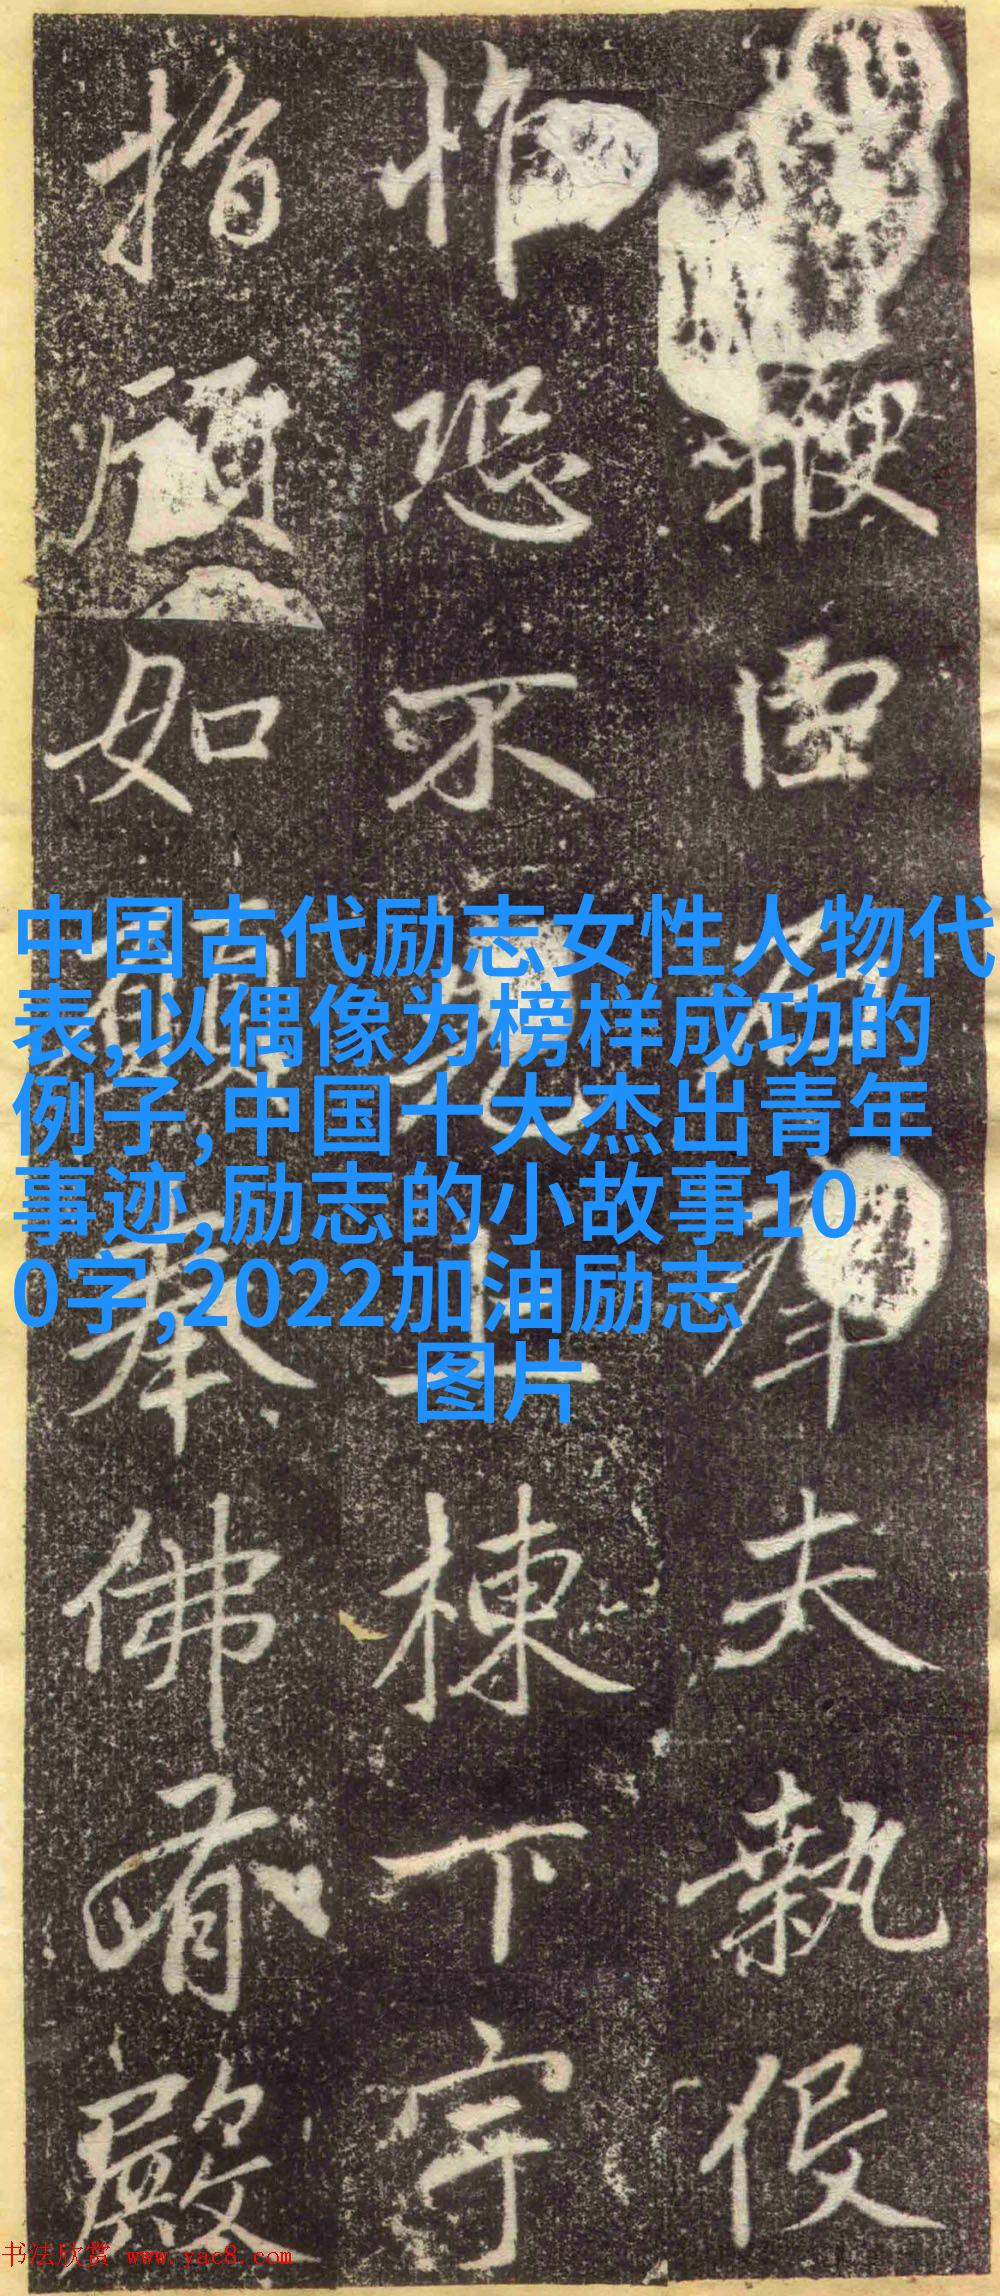 中国古代励志女性人物代
表,以偶像为榜样成功的
例子,中国十大杰出青年
事迹,励志的小故事10
0字,2022加油励志
图片
鞭
虚
夫
執
役
怍
恐
不
上
棟
下
宇
指
顧
如
奉
佛
有
殿
书法欣赏 www.yac8.com